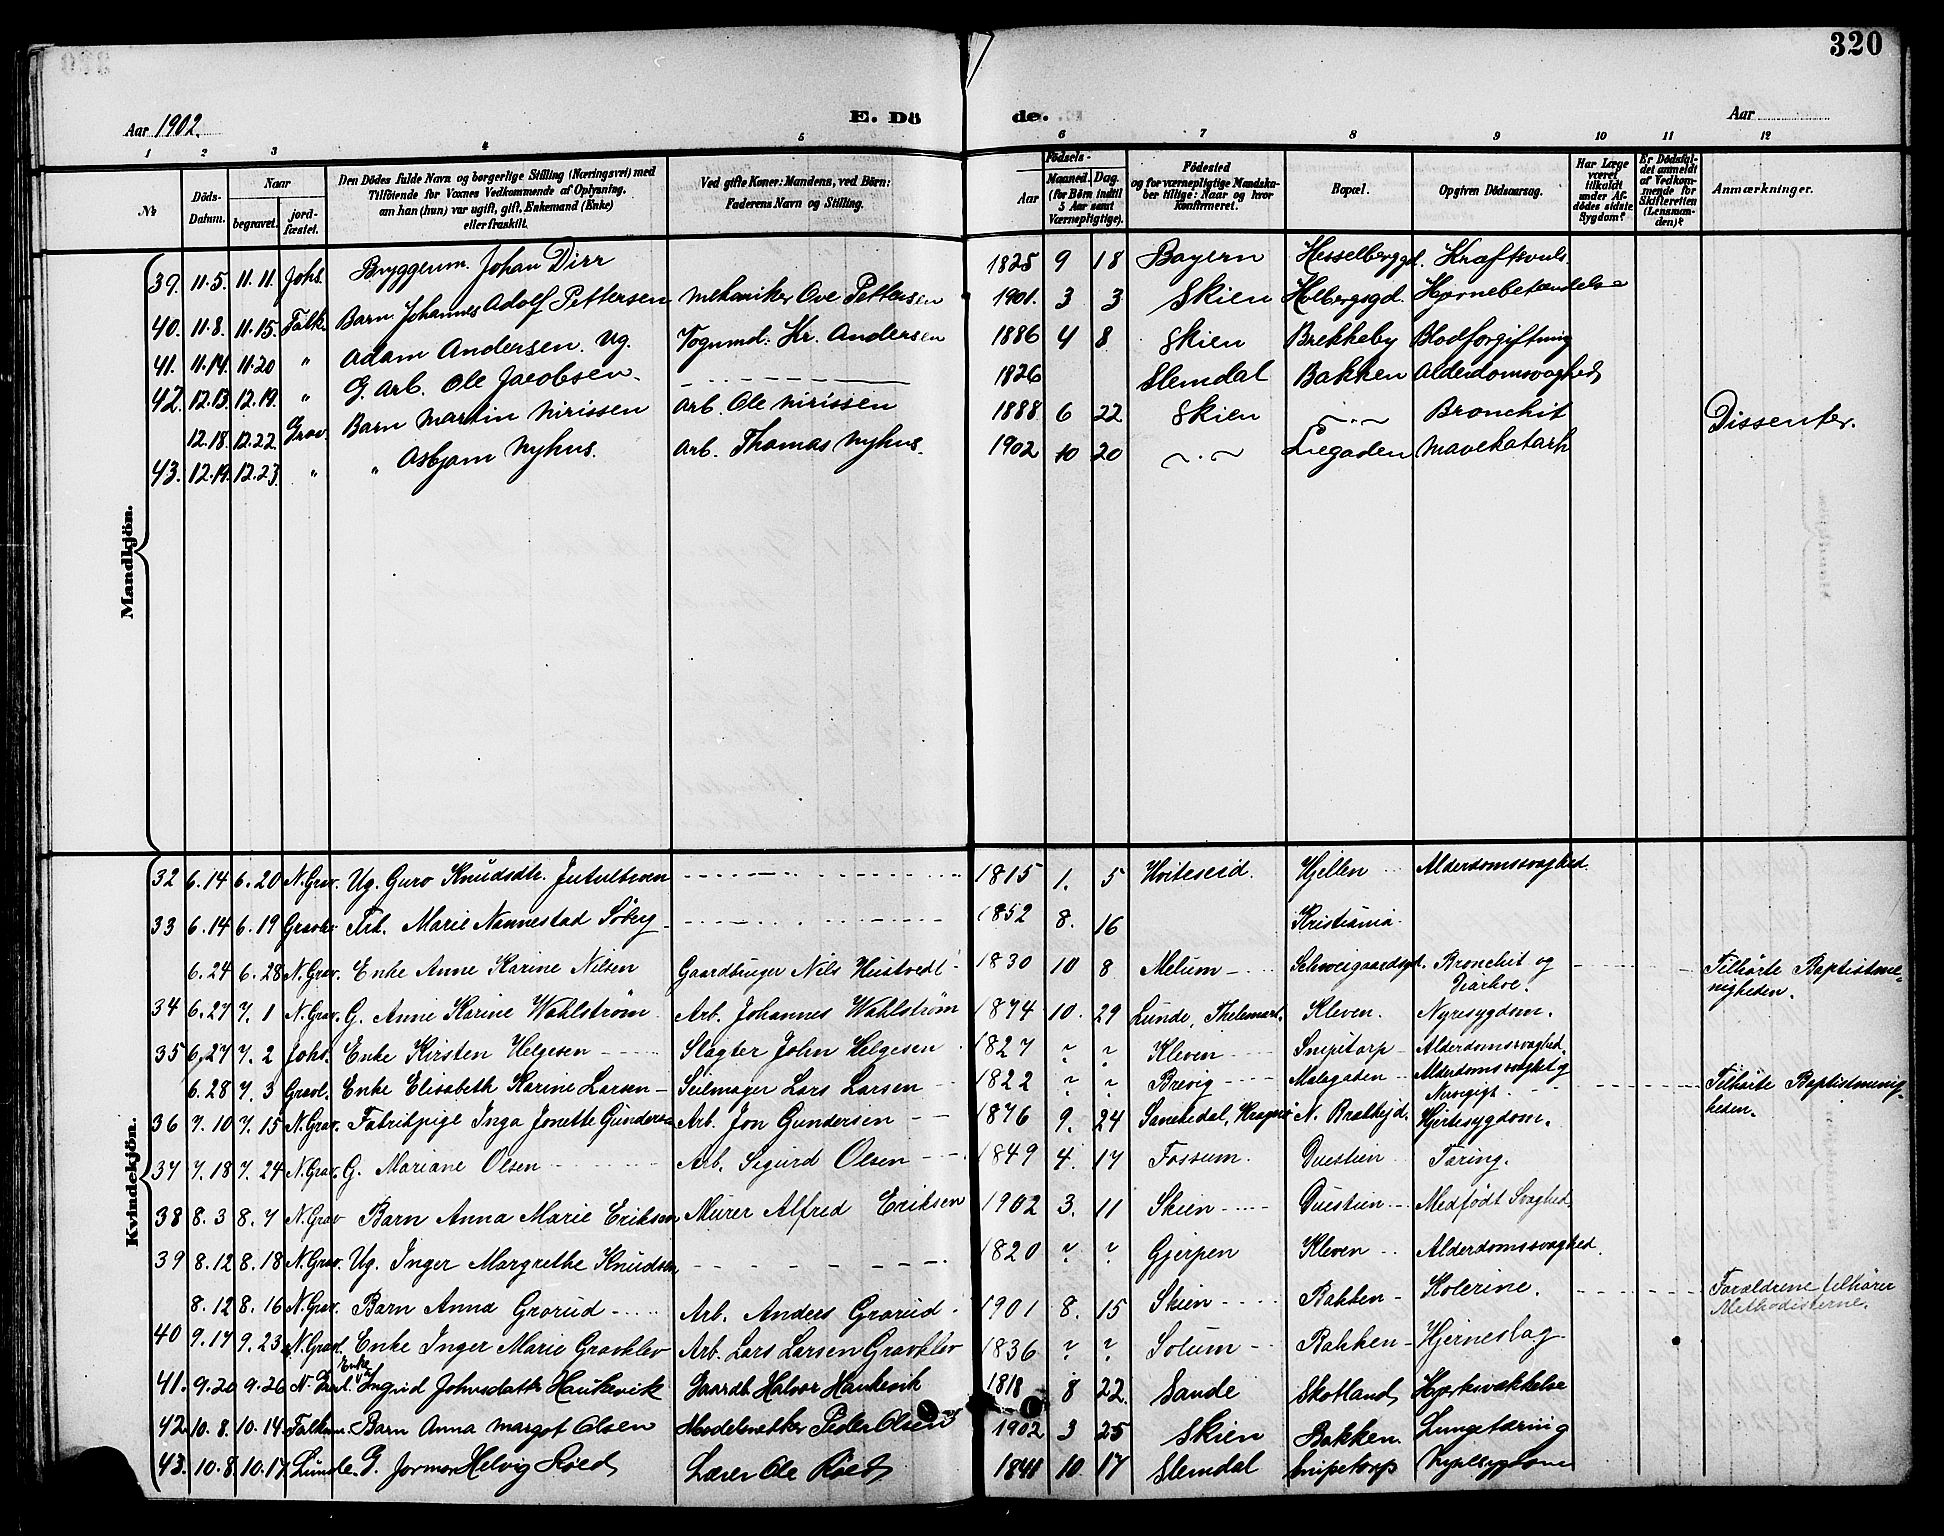 320
Aar 1902. E. Dö de. Aar
1 2 3 4 5 6 7 8 9 10 11 12
№ Döds-Datum. Naar begravet. jordfæstet. Den Dödes fulde Navn og borgerlige Stilling (Næringsvei) med Tilföiende for Voxnes Vedkommende af Oplysning, om han (hun) var ugift, gift, Enkemand (Enke) eller fraskilt. Ved gifte Koner: Mandens, ved Börn: Faderens Navn og Stilling. Födsels- Aar Maaned. Dag. (for Börn indtil 5 Aar samt Værnepligtige). Födested og for værnepligtige Mandskaber tillige: Naar og hvor konfirmeret. Bopæl. Opgiven Dödsaarsag. Har Læge været tilkaldt under Afdödes sidste Sygdom? Er Dödsfaldet anmeldt af Vedkommende for Skifteretten (Lensmanden)? Anmærkninger.
Mandkjön.
39. 11.5. 11.11. Johs. Bryggerim. Johan Dirr 1825 9 18 Bayern Hesselberggd. Kræftsvuls.
40. 11.8. 11.15. Falk. Barn Johannes Adolf Pettersen Mekaniker Ove Pettersen 1901. 3 3 Skien Holbergsgd. Hjernebetændelse
41. 11.14. 11.20 " Adam Andersen. Ug. Vognmd. Kr. Andersen 1886 4 8 Skien Brekkeby Blodforgiftning
42. 12.13. 12.19. " G. Arb. Ole Jacobsen. 1826 Slemdal Bakken Alderdomssvaghed
12.18. 12.22. Grav. Barn Martin Nirissen Arb. Ole Nirissen 1888 6 22 Skien Bronchit Dissenter.
43. 12.19. 12.23. " " Asbjørn Nyhus. Arb. Thomas Nyhus. 1902 10 20 Liegaden Mavekatarh
Kvindekjön.
32 6.14 6.20 N.Grav. Ug. Guro Knudsdtr. 1815 1. 5 Hviteseid. Hjellen Alderdomssvaghed.
33 6.14 6.19 Frk. Marie Nannestad 1852 8. 16 Kristiania
6.24 6.28 N.Grav. Enke Anne Karine Nilsen Gaardbruger Nils Hustvedt 1830 10 8 Melum Schweigaardsgd. Bronchit og Diarhoe. Tilhörte Baptistmenigheden.
34 6.27 7.1 N.Grav. G. Anne Karine Wahlström Arb. Johannes Wahlström 1874 10. 29 Lunde, Thelemark. Kleven. Nyresygdom.
35 6.27 7.2 Johs. Enke Kirsten Helgesen Slagter John Helgesen 1827 ? ? Kleven Snipetorp Alderdomssvaghed.
6.28 7.3 Gravl. Enke Elisabeth Karine Larsen Seilmager Lars Larsen 1822 ? ? Brevig Malegaden Alderdomssvaghet og Tilhörte Baptistmenigheden.
36 7.10 7.15 N.Grav. Fabrikpige Inga Jonette Gundersen Arb. Jon Gundersen 1876 9. 24 Sannikedal, Kragerö Hjertesygdom.
37 7.18 7.24 N.Grav. G. Mariane Olsen Arb. Sigurd Olsen 1849 4. 17 Fossum. Duestien Tæring.
38 8.3 8.7 N.Grav Barn Anna Marie Eriksen Murer Alfred Eriksen 1902 3. 11 Skien Duestien Medfödt Svaghed.
39 8.12 8.18 N.Grav. Ug. Inger Margrethe Knudsen 1820 ? ? Gjerpen Kleven Alderdomssvaghed.
8.12 8.16 N.Grav. Barn Anna Grorud Arb. Anders Grorud 1901 8. 15 Skien Bakken Kolerine. Forældrene tilhörer Methodisterne.
40 9.17 9.23 N.Gravl. Enke Inger Marie Gravklev Arb. Lars Larsen Gravklev 1836 ? ? Solum Bakken Hjerneslag
41. 9.20 9.26 N. Gravl. Enke Ingrid Johnsdatter Haukevik Gaardb. Halvor Haukevik 1818 8 22 Sande Skotland Hjertesvækkelse
42. 10.8. 10.14. Falkum. Barn Anna Margot Olsen Modelsnekker Peder Olsen 1902 3 25 Skien Bakken. Lungetæring
43. 10.8. 10.17. Lunde. G. Jormor Helvig Röed Lærer Ole Röed 1841 10. 17 Slemdal Snipetorp